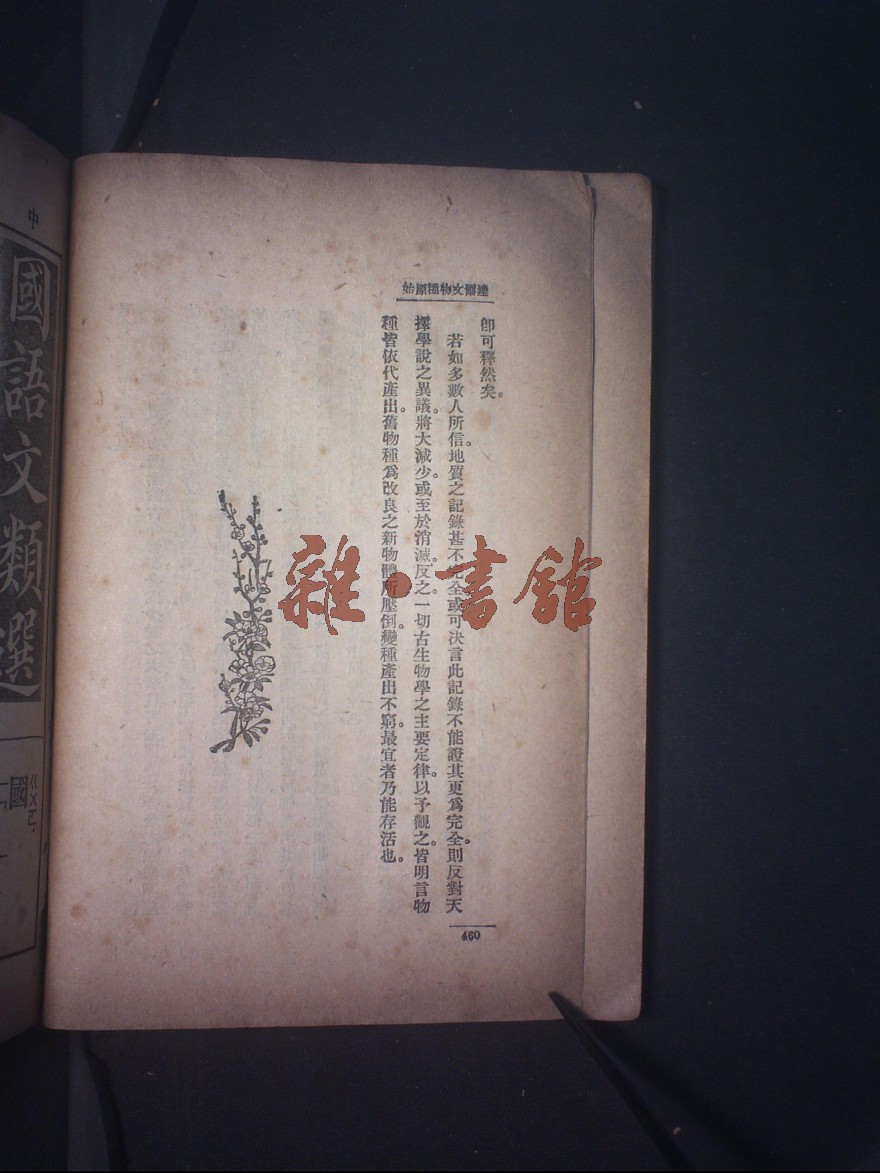 達爾文物種原始
卽可釋然矣。
若如多數人所信。地質之記錄甚不完全。或可決言此記錄不能證其更爲完全。則反對天
擇學說之異議。將大減少。或至於消滅。反之。一切古生物學之主要定律。以予觀之。皆明言物
種皆依代產出。舊物種爲改良之新物體所壓倒。變種產出不窮。最宜者乃能存活也。
460
雜·書館
中
國語文類選
國
ㄍㄨㄛ